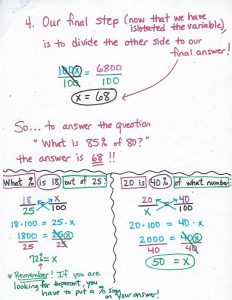 4. Our final step (now that we have
islotated the variable),
is to divide the other side to our
final answer!
100x = 6800
100 100
x = 68
So... to answer the question
"What is 85% of 80?"
the answer is 68!!
What % is 18 out of 25?
18 = x
25 100
18·100 = 25·x
1800 = 25x
25 25
72% = x
* Remember! If you are
looking for the percent, you
have to put a % sign
on your answer!
20 is 40% of what number?
20 = 40
x 100
20·100 = 40·x
2000 = 40x
40 40
50 = x